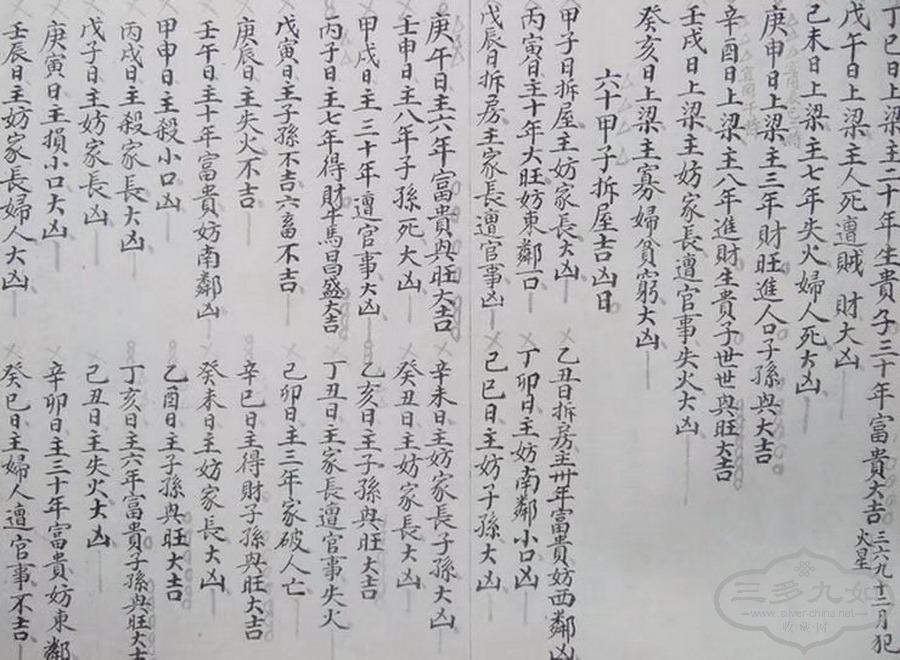 丁巳日上梁主二十年生貴子三十年富貴大吉 三六九十二月犯火星
戊午日上梁主人死遭賊 財大凶
己未日上梁主七年失火婦人死大凶
庚申日上梁主三年財旺進人口子孫興大吉
辛酉日上梁主八年進財生貴子世世興旺大吉
壬戌日上梁主妨家長遭官事失火大凶
癸亥日上梁主寡婦貧窮大凶
六十甲子拆屋吉凶日
甲子日拆屋主妨家長大凶
乙丑日拆房主卅年富貴妨西鄰凶
丙寅日主十年大旺妨東鄰一口
丁卯日主妨南鄰小口凶
戊辰日拆房主家長遭官事凶
己巳日主妨子孫大凶
庚午日主六年富貴興旺大吉
辛未日主妨家長子孫大凶
壬申日主八年子孫死大凶
癸丑日主妨家長大凶
甲戌日主三十年遭官事大凶
乙亥日主子孫興旺大吉
丙子日主七年得財牛馬昌盛大吉
丁丑日主家長遭官事失火
戊寅日主子孫不吉六畜不吉
己卯日主三年家破人亡
庚辰日主失火不吉
辛巳日主得財子孫興旺大吉
壬午日主十年富貴妨南鄰凶
癸未日主妨家長大凶
甲申日主殺小口凶
乙酉日主子孫興旺大吉
丙戌日主殺家長大凶
丁亥日主六年富貴子孫興旺大吉
戊子日主妨家長凶
己丑日主失火大凶
庚寅日主損小口大凶
辛卯日主三十年富貴妨東鄰
壬辰日主妨家長婦人大凶
癸巳日主婦人遭官事不吉
三多九如
www.silver-china.net
收藏网